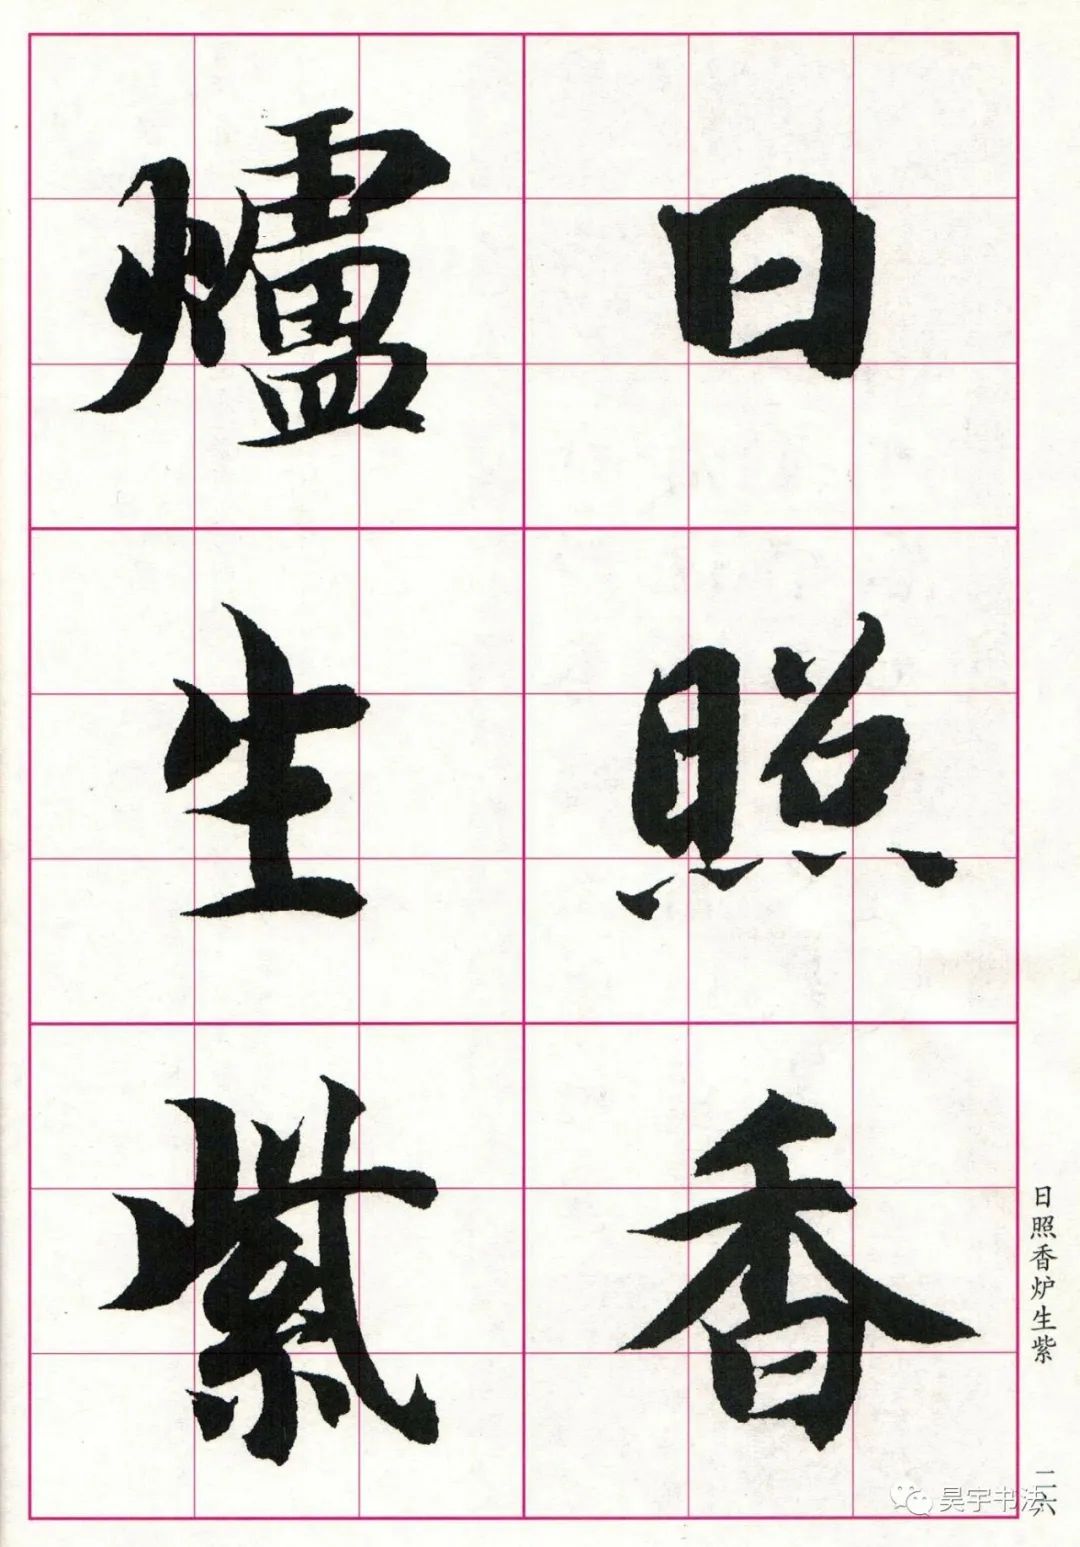 日照香
爐生紫
日照香炉生紫
二六
昊宇书法